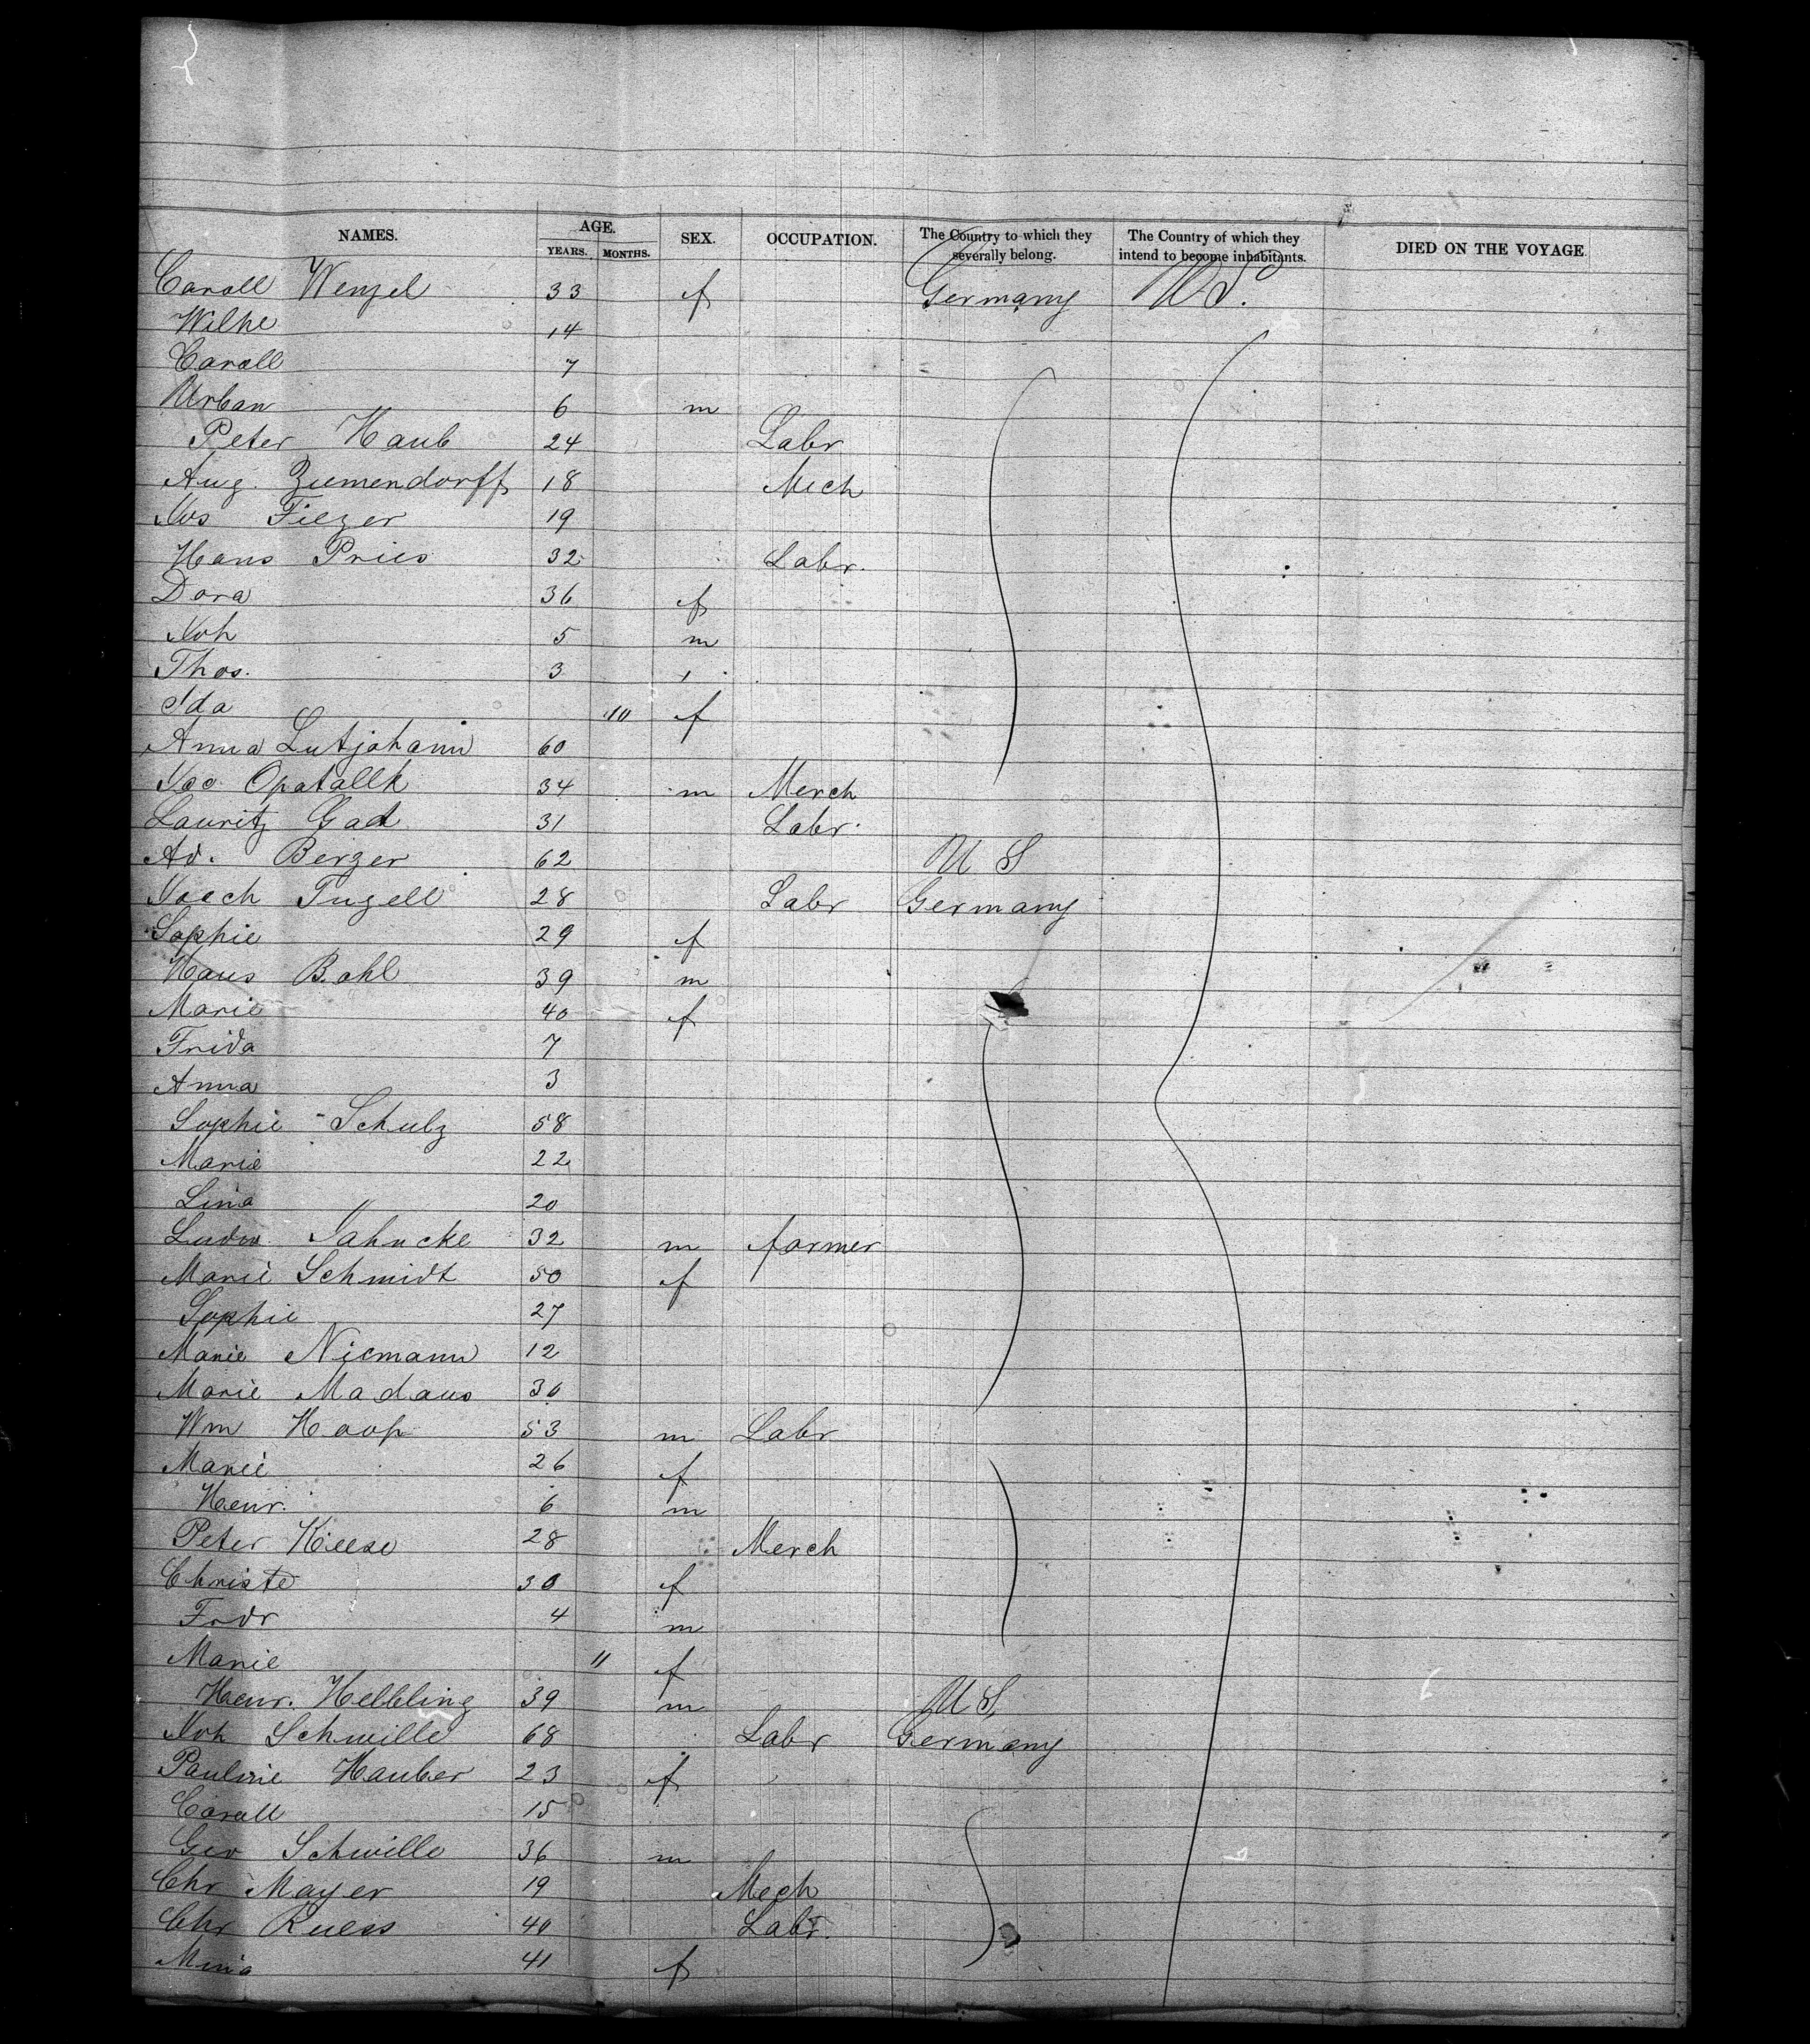 NAMES. AGE. SEX. OCCUPATION. The Country to which they severally belong. The Country of which they intend to become inhabitants. DIED ON THE VOYAGE
YEARS. MONTHS.
Caroll Wenzel 33 f Germany U S.
Wilhe 14
Caroll 7
Urban 6 m
Peter Haub 24 Labr
Aug. Ziemendorff 18 Mech
Jos Fiezer 19
Hans Pries 32 Labr.
Dora 36 f
Joh 5 m
Thos. 3 "
Ida 10 f
Anna Lutjohann 60
Jac Opatallk 34 m Merch
Lauritz Gad 31 Labr.
Ad. Berger 62 U S
Joach Tugell 28 Labr Germany
Sophie 29 f
Hans Bohl 39 m
Marie 40 f
Frida 7
Anna 3
Sophie Schulz 58
Marie 22
Lina 20
Ludw. Jahncke 32 m farmer
Marie Schmidt 50 f
Sophie 27
Marie Niemann 12
Marie Madaus 30
Wm Hoop 53 m Labr
Marie 26 f
Henr. 6 m
Peter Kiese 28 Merch
Christe 30 f
Frdr 4 m
Marie 11 f
Henr. Helbling 39 m U S,
Joh Schwille 68 Labr Germany
Pauline Hauber 23 f
Caroll 15
Geo Schwille 36 m
Chr Mayer 19 Mech
Chr Ruess 40 Labr.
Mina 41 f